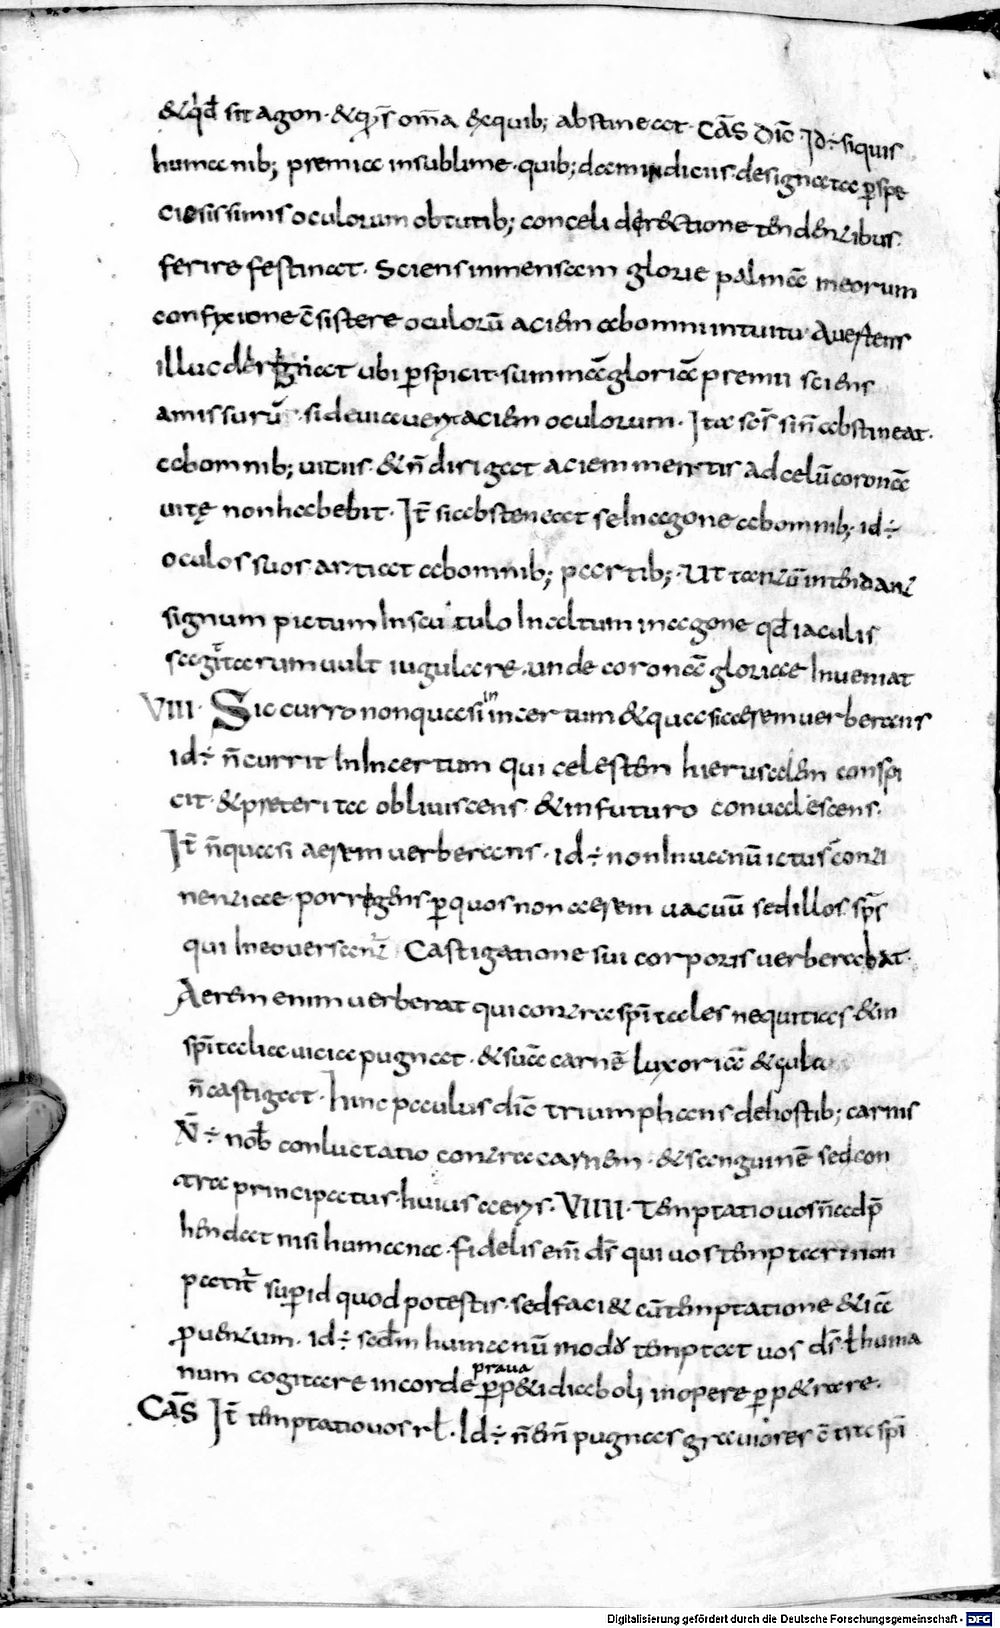 & q'd sit agon · & q̄ s̄ om̄a exquib; abstineat · CAS̄ Dic̄ · Id ÷ siquis
humanib; premia insublime · quib; dam indicus · designata ꝑspe
ciosissimis oculorum obtutib; conceli derectione tendentibus
ferire festinat · Sciens inmensam glorie palmā meorum
confyxione c̄sistere oculorū aciem abomni intuitu Auertens
illuc der gnat ubi ꝑspicit · summā gloriā premii sciens
amissurū · si deuia uertaciem oculorum · Ita sc̄s sin̄ abstineat ·
abomnib; uitiis · & n̄ dirigat aciem mentis ad celū coronā
uitę non habebit · It̄ si absteneat se Inagone abomnib; id ÷
oculos suos artiat abomnib; partib; · Ut tantū intendant
signum pictum In scutulo In altum inagone qd̄ iaculis
sagittarum uult iugulare · unde coronā gloriae Inueniat
VIII · Sic curro non quasi in incertum & quasi aerem uerberans
id ÷ n̄ currit In Incertum qui celestem hierusalem conspi
cit · & preterita obliuiscens · & in futuro conualescens ·
It̄ n̄ quasi aerem uerberans · id ÷ non In uanū ictus conti
nentiae porrigens · ꝑ quos non aerem uacuū sed illos sps̄
qui Ineo uersant̄ Castigatione sui corporis uerberabat ·
Aerem enim uerberat qui contra sp̄itales nequitias & in
sp̄italia uicia pugnat · & suā carnē luxoriā & gula
n̄ castigat · hinc paulus dic̄ triumphans de hostib; carnis
N̄ ÷ nob̄ conluctatio contra carnem · & sanguinē sed con
tra principatus · huius aerys · VIIII · Temptatio uos n̄ adp̄
hendat nisi humana · fidelis em̄ ds̄ qui uos temptari non
patit̄ suꝑ id quod potestis · sed faci& cū temptatione & iā
ꝓuentum · id ÷ secd̄m humanū modū temptat uos ds̄ · t̄ huma
num cogitare in corde praua ꝑp&i diaboli in opere ꝑp&rare ·
CAS̄ It̄ temptatio uos rl̄ · Id ÷ n̄ em̄ pugnas grauiores c̄tra sp̄i
Digitalisierung gefördert durch die Deutsche Forschungsgemeinschaft - DFG